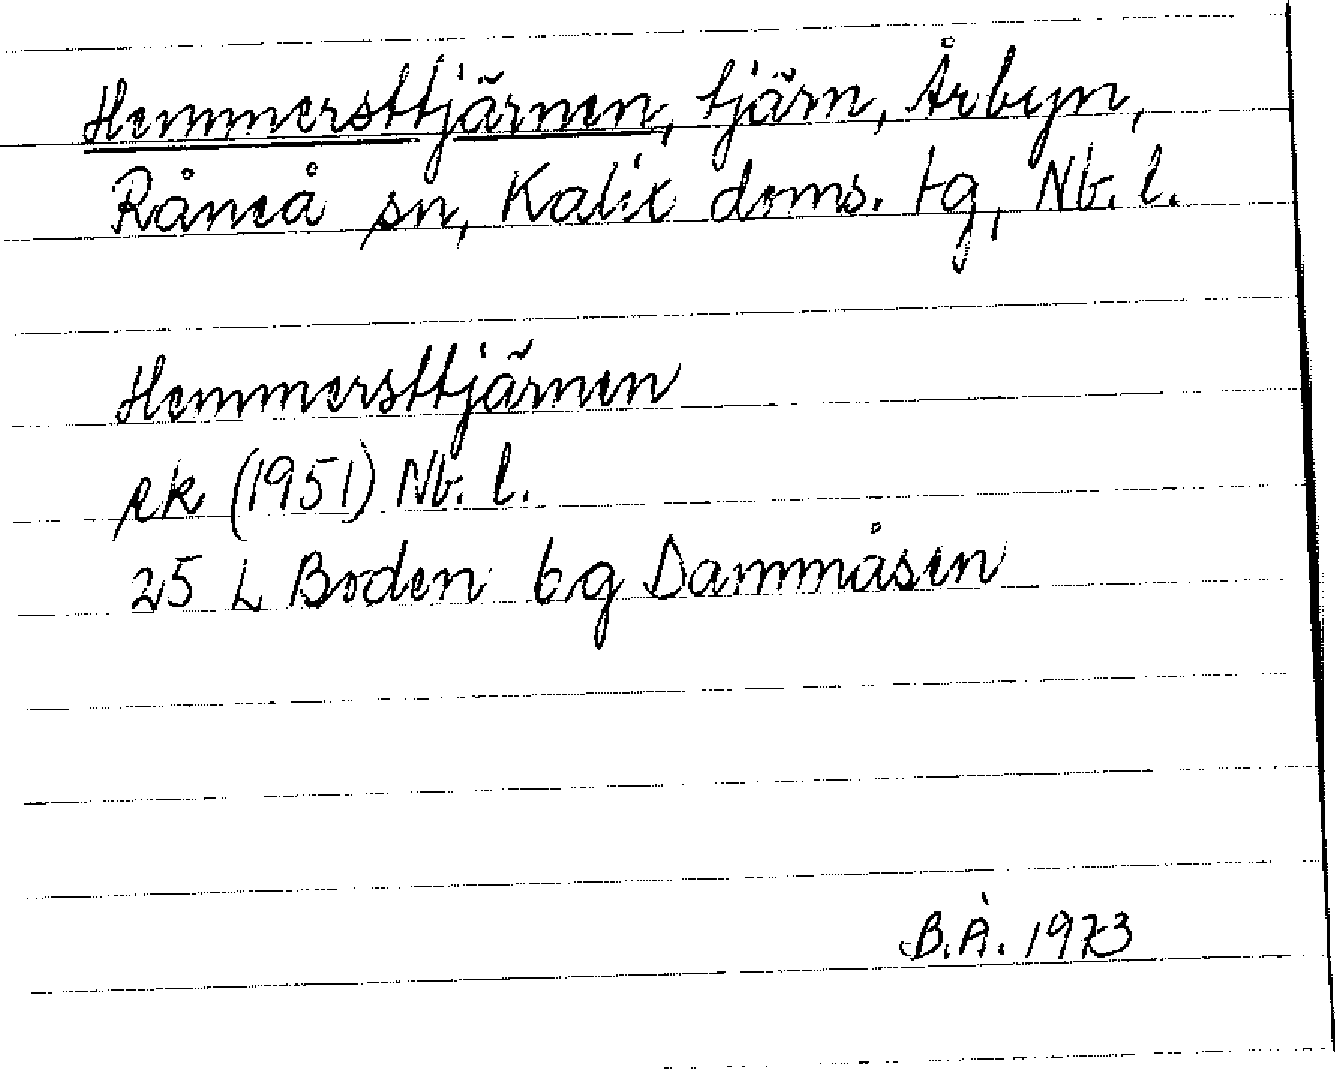 Hemmersttjärnen, tjärn, Årbyn,
Råneå sn, Kalix doms. tg, Nb. l.
Hemmersttjärnen
rk (1951) Nb. l.
25 L Boden 6g Dammåsen
B.Å. 1973